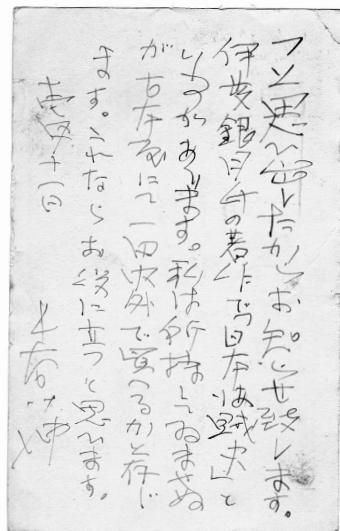 フと思ひ出したからお知らせ致します。
伊藤銀月氏の著作で「日本海賊史」と
いふのがあります。私は所持してゐませぬ
が古本屋にて一円内外で買へるかと存じ
ます。これならお役に立つと思ひます。
十一日